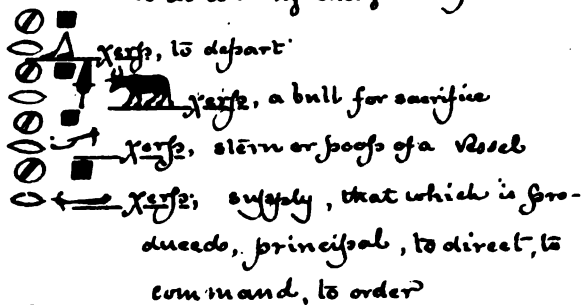 χerp, to depart
χerp, a bull for sacrifice
χerp, stern or poop of a vessel
χerp; supply, that which is pro-
duced, principal, to direct, to
command, to order